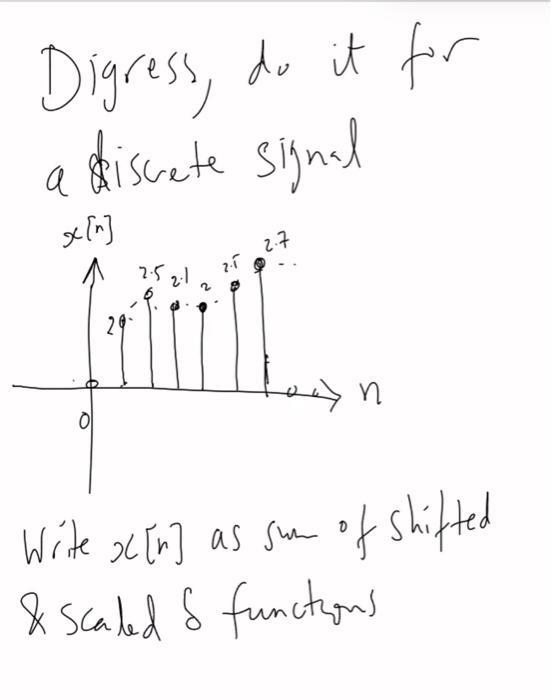 Digress, do it for
a discrete signal
x[n]
2.7
2.5 2.1 2
2
n
0
Write x[n] as sum of shifted
& scaled δ functions